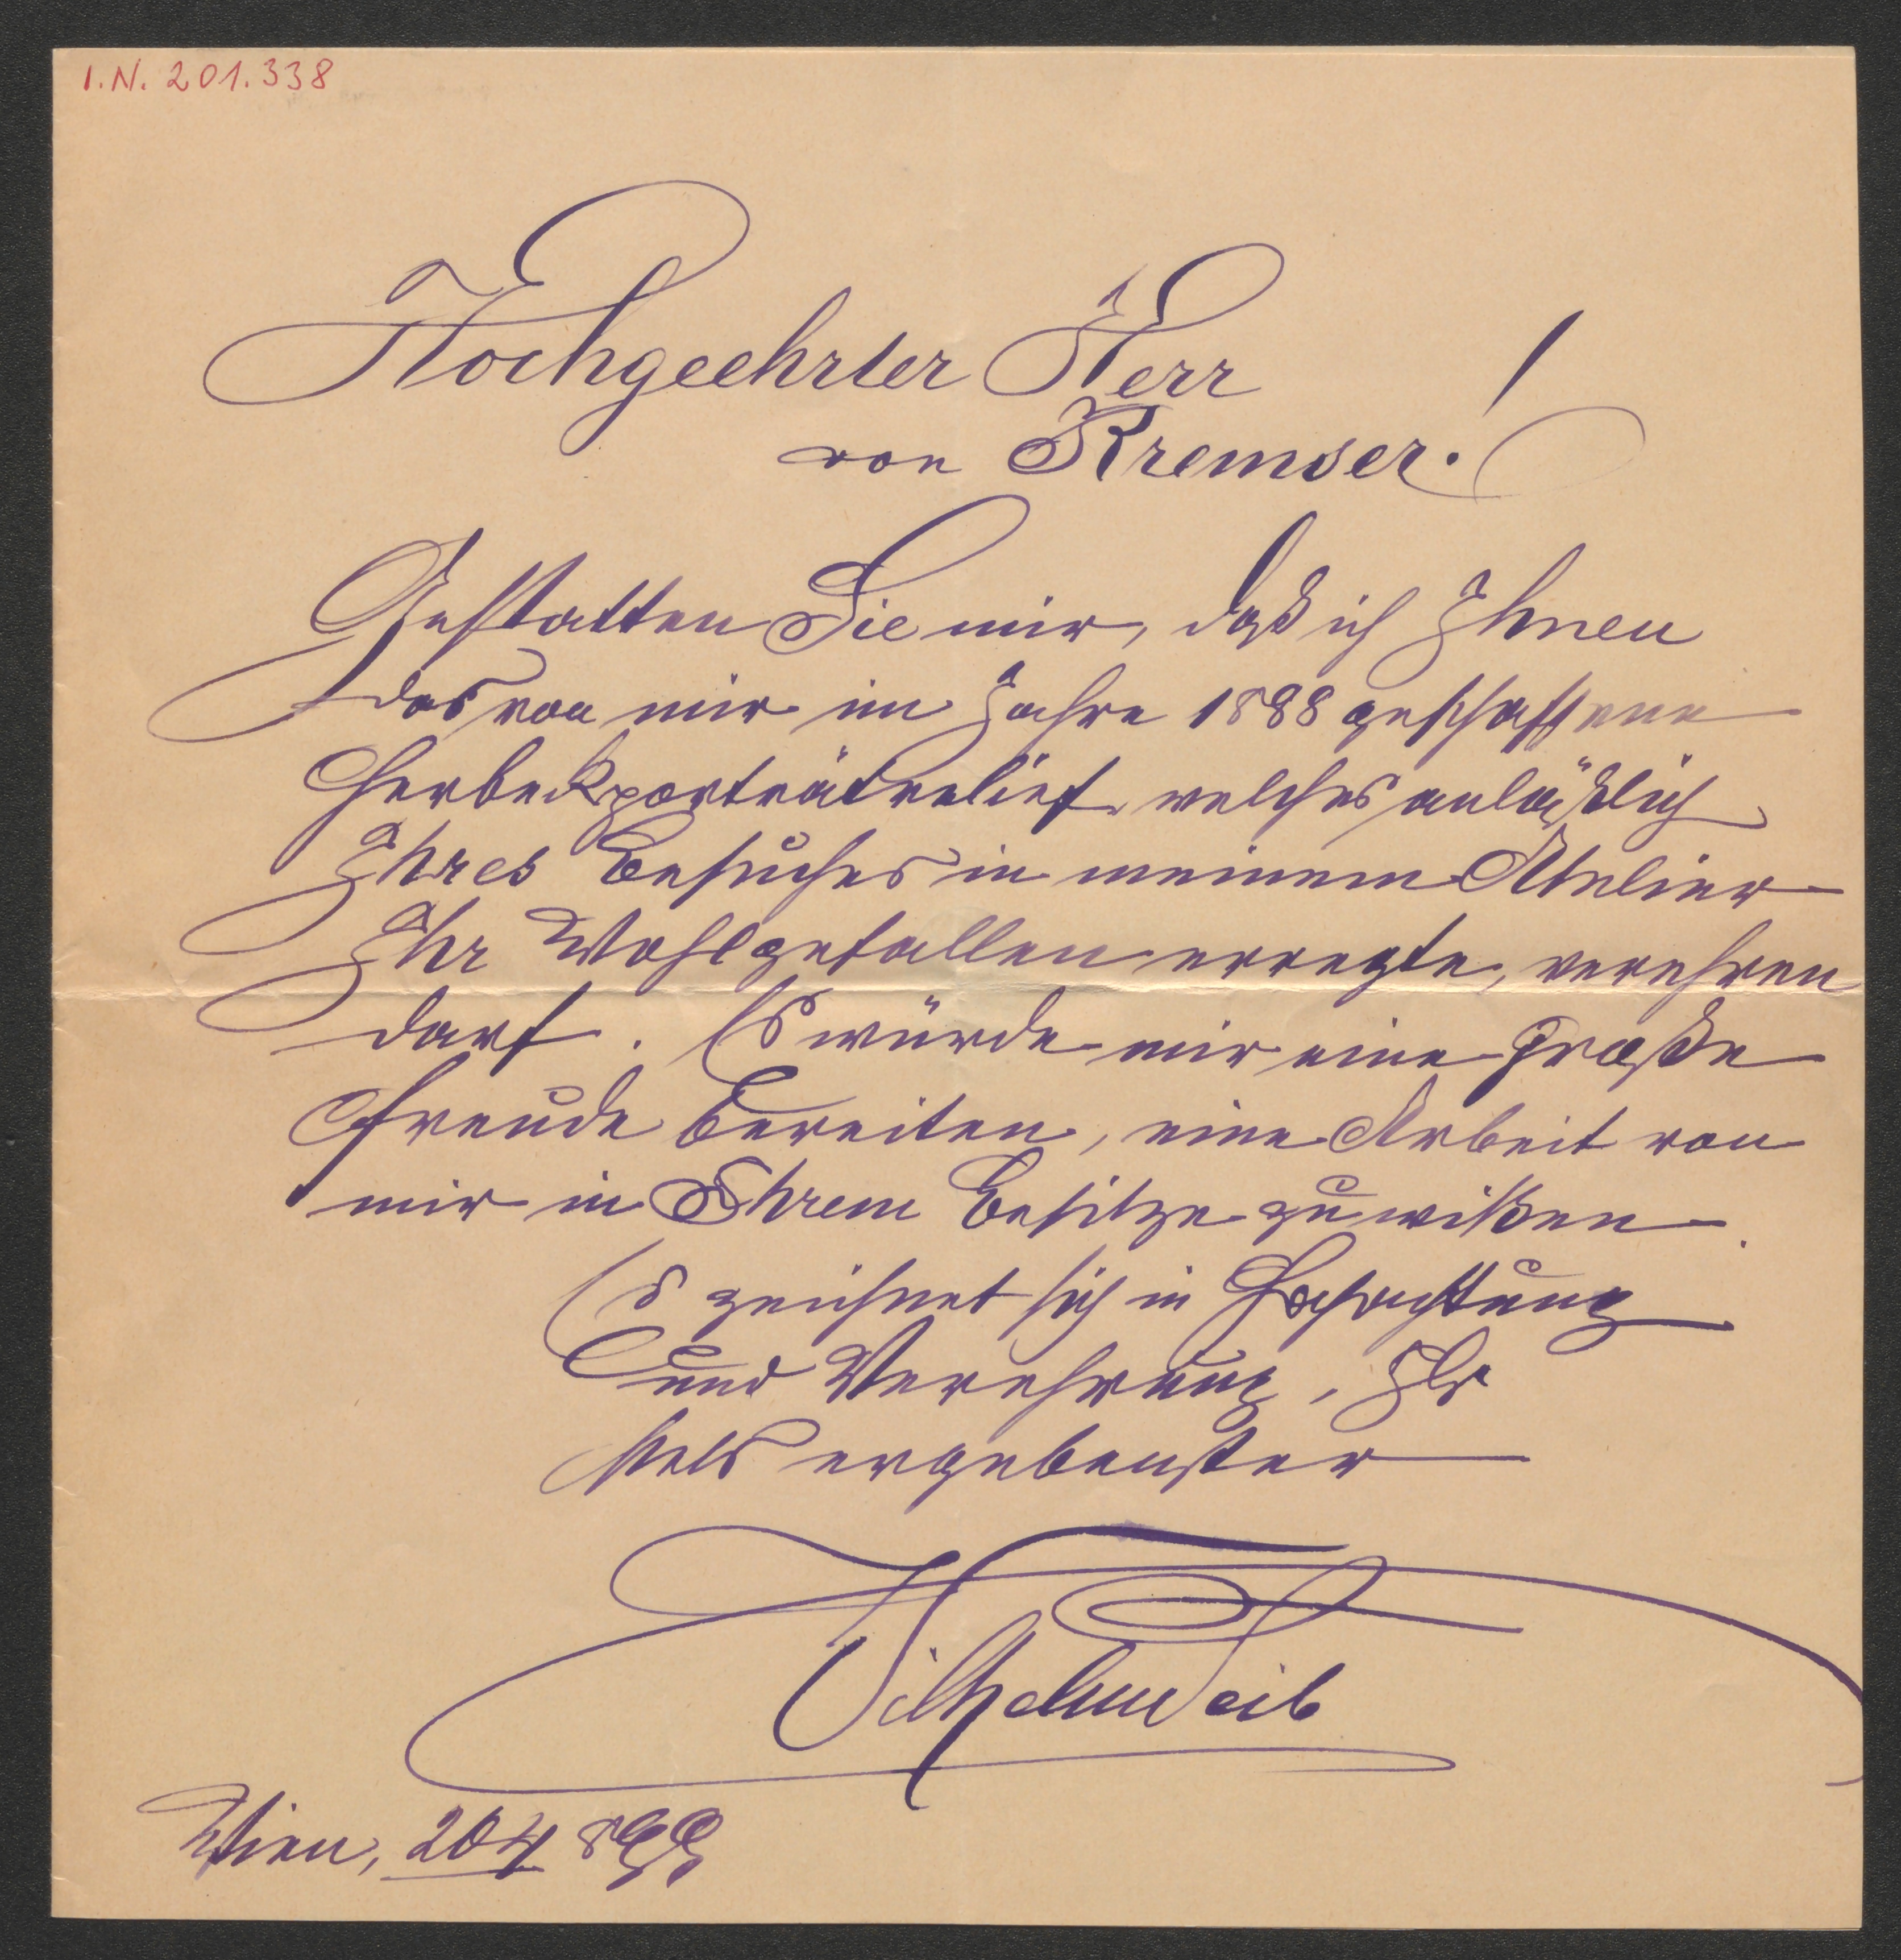 I.N. 201.338
Hochgeehrter Herr
von Kremser!
Gestatten Sie mir, daß ich Ihnen
das von mir im Jahre 1888 geschaffene
Herbeckporträtrelief welches anläßlich
Ihres Besuches in meinem Atelier
Ihr Wohlgefallen erregte, verehren
darf. Es würde mir eine große
Freude bereiten, eine Arbeit von
mir in Ihrem Besitze zu wißen.
Es zeichnet sich in Hochachtung
und Verehrung, Ihr
stets ergebenster
Wilhelm Seib
Wien, 20/4 899